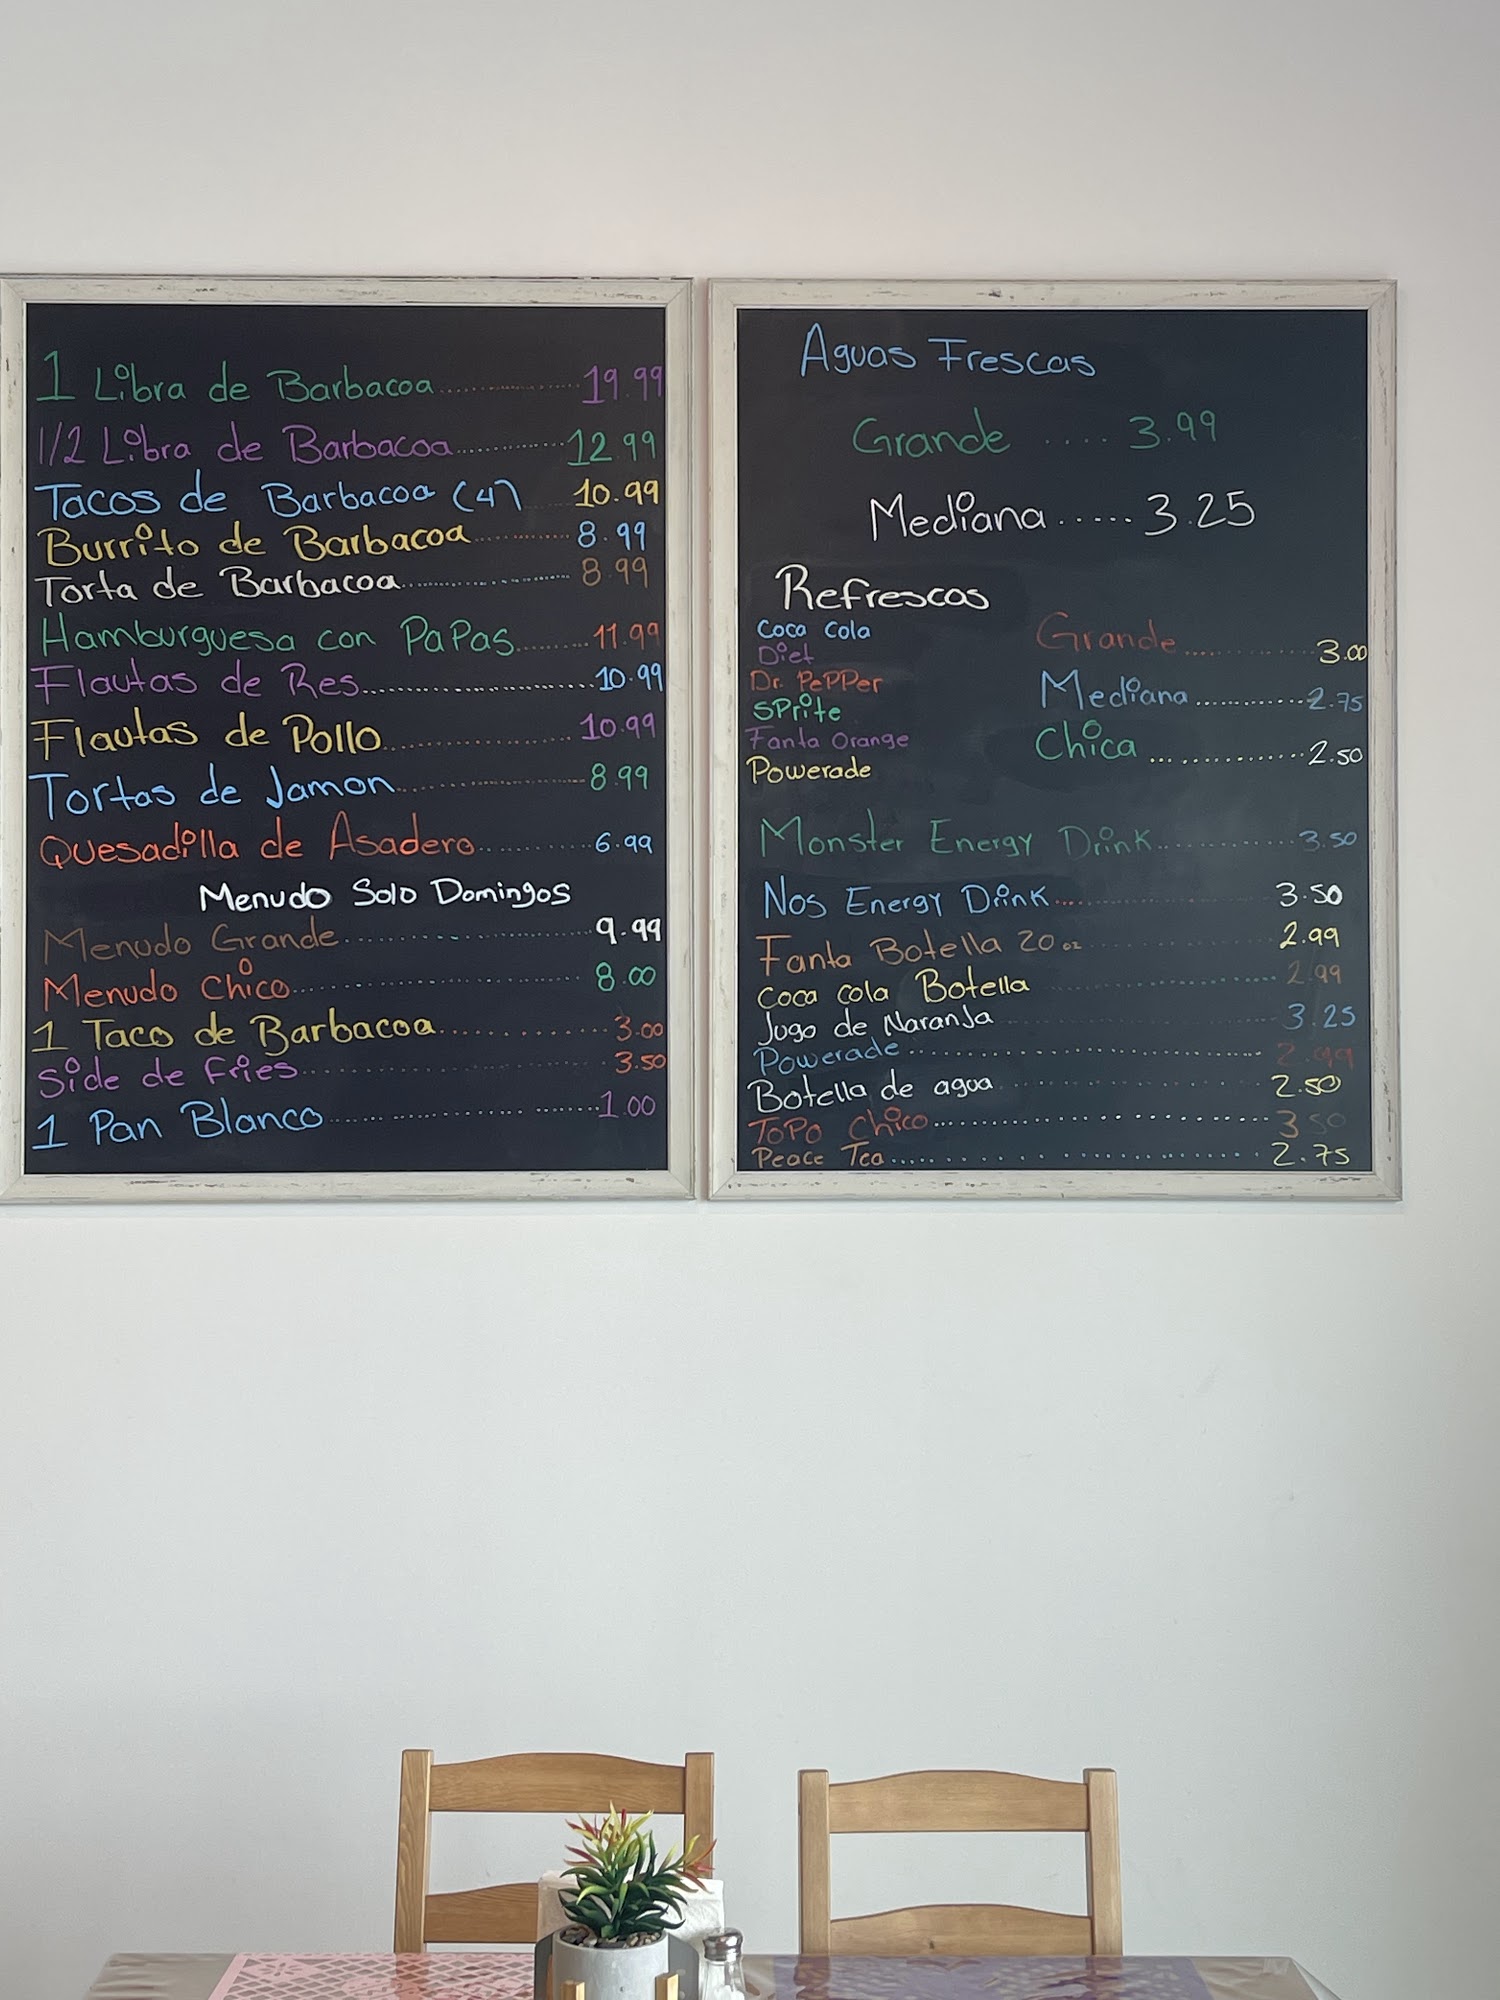 1 Libra de Barbacoa 19.99
1/2 Libra de Barbacoa 12.99
Tacos de Barbacoa (4) 10.99
Burrito de Barbacoa 8.99
Torta de Barbacoa 8.99
Hamburguesa con PaPas 11.99
Flautas de Res 10.99
Flautas de Pollo 10.99
Tortas de Jamon 8.99
Quesadilla de Asadero 6.99
Menudo Solo Domingos
Menudo Grande 9.99
Menudo Chico 8.00
1 Taco de Barbacoa 3.00
Side de Fries 3.50
1 Pan Blanco 1.00
Aguas Frescas
Grande .... 3.99
Mediana ..... 3.25
Refrescos
Coca Cola
Diet
Dr. PePPer
SPrite
Fanta Orange
Powerade
Grande 3.00
Mediana 2.75
Chica 2.50
Monster Energy Drink 3.50
Nos Energy Drink 3.50
Fanta Botella 20 oz 2.99
Coca Cola Botella 2.99
Jugo de NaranJa 3.25
Powerade 2.99
Botella de agua 2.50
ToPo Chico 3.50
Peace Tea 2.75